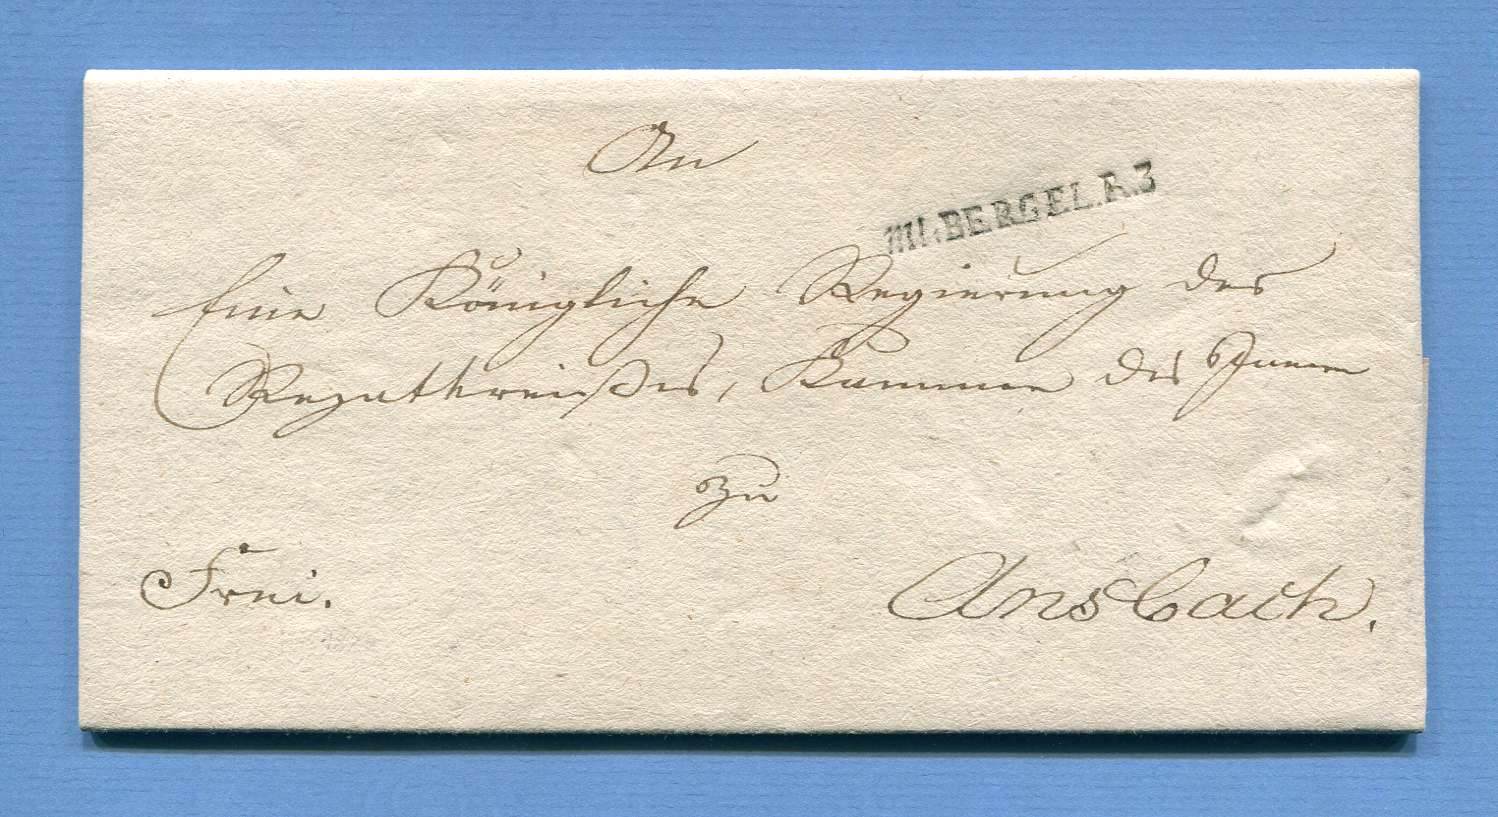 An
Mt. BERGEL. R.3
Eine Königliche Regierung des
Rezatkreißes, Kammer des Innern
zu
Frei.
Ansbach.